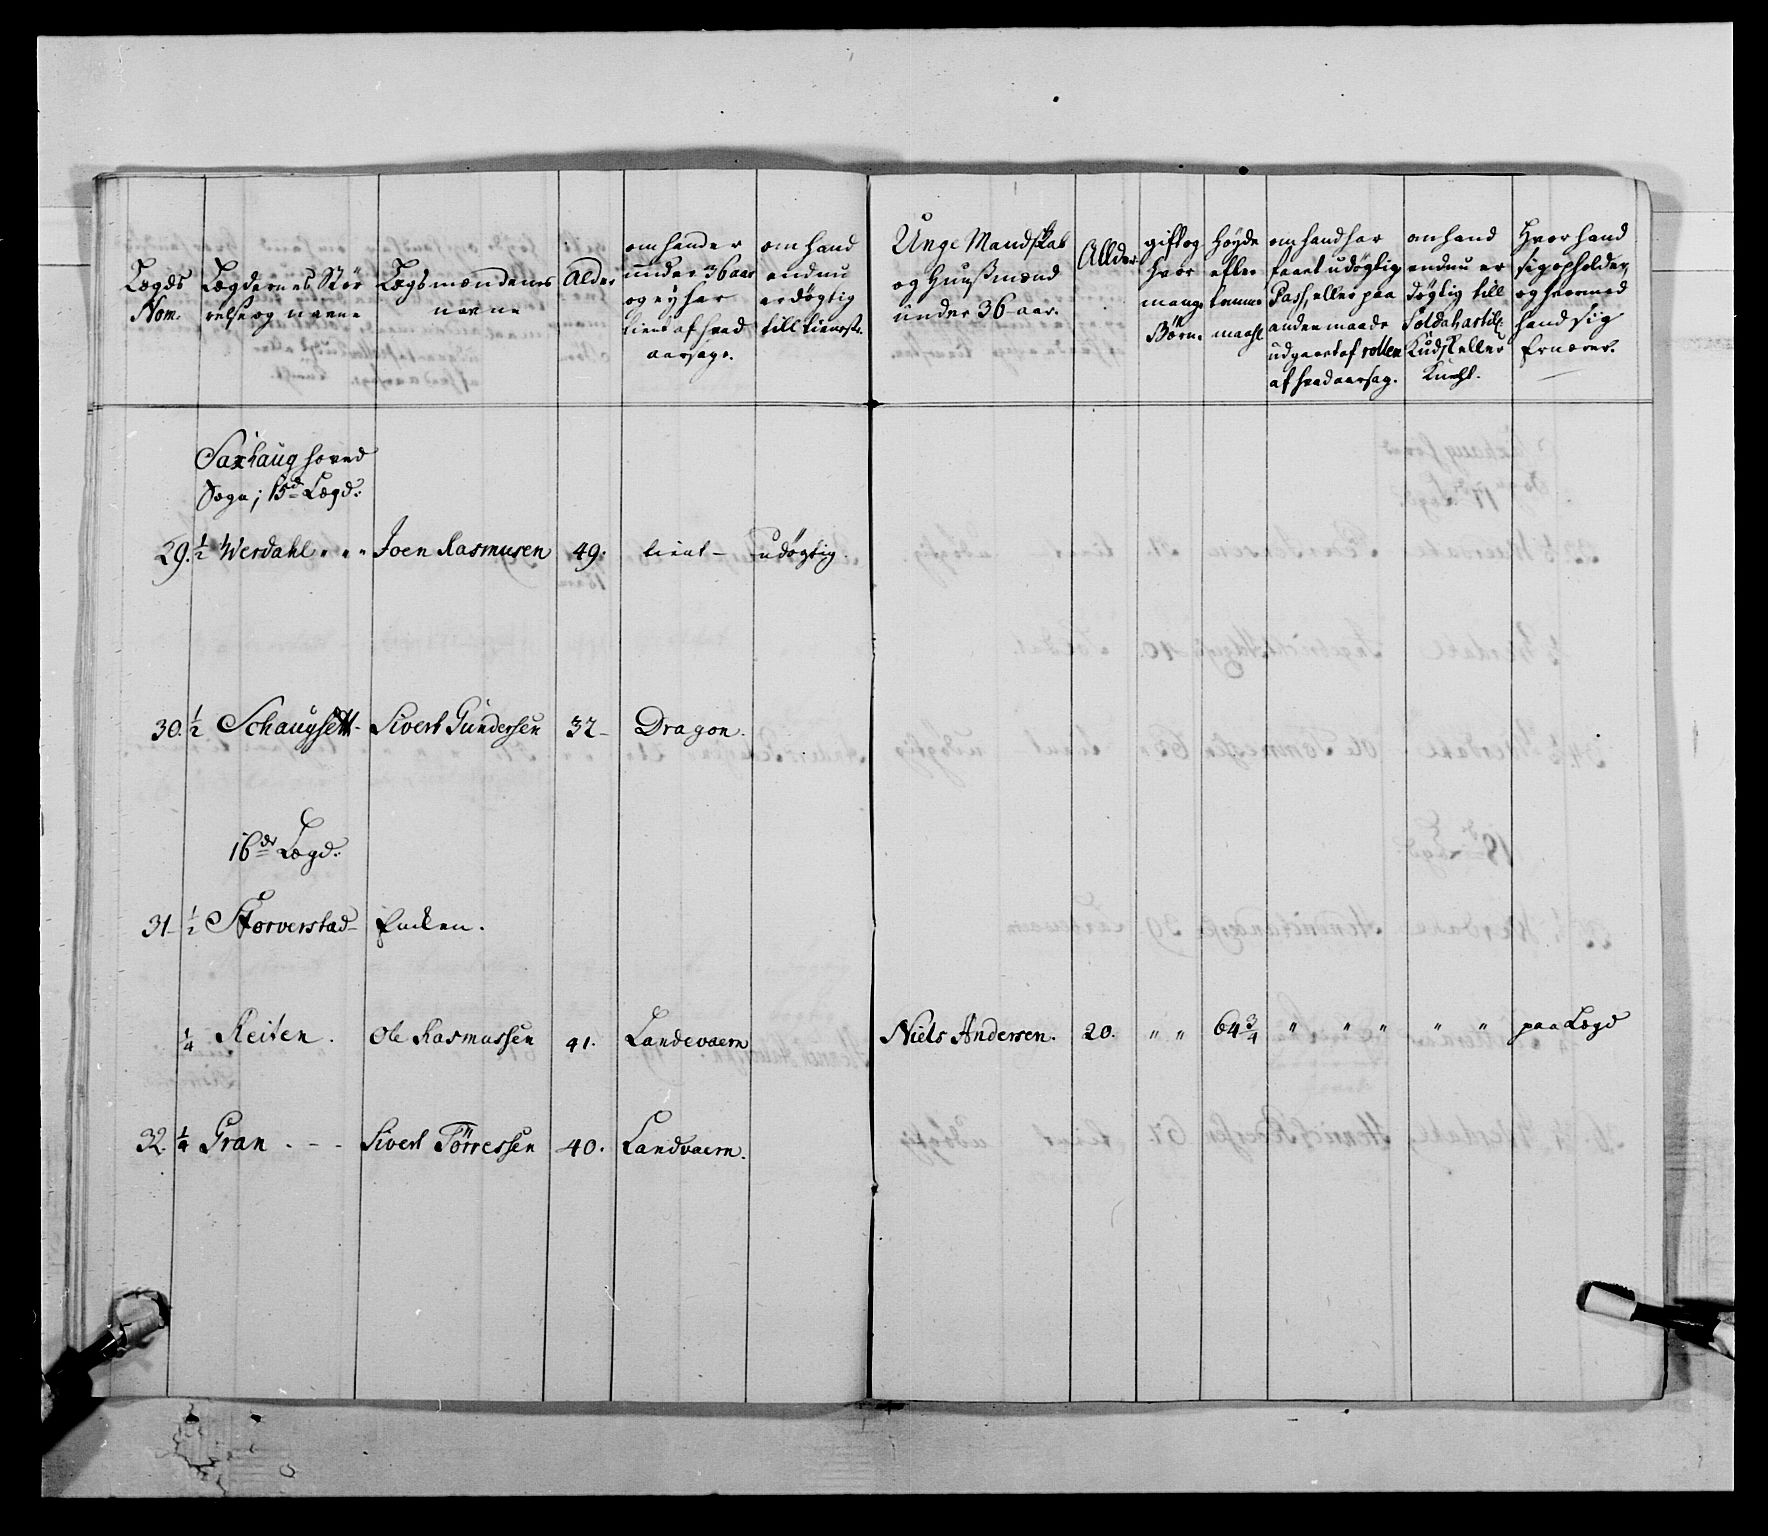 Lægds
Nom.
Lægdernes Stør
relse og navne
Lægsmændenes
navne
Alder
om hand er
under 36 aar
og ey har
tient af hvad
aarsage.
om hand
endnu
er døgtig
till tieneste.
Unge Mandskab
og Huusmænd
under 36 aar.
Allder
gift og
hvor
mange
Børn.
Høyde
efter
tomme
maahl
om hand har
faaet udøgtig
Pass, eller paa
anden maade
udgaaet af rollen
af hvad aarsag.
om hand
endnu er
døgtig till
Soldat
Kudsk eller
Knegt.
Hvor hand
sig opholder,
og hvormed
hand sig
ernærer.
Saxhaug hoved
Sogn; 15d Lægd:
29. 1/2 Werdahl " " " Joen Rasmusen 49. tient - udøgtig.
30. 1/2 Schaugsett - Sivert Gundersen 32 - Dragon.
16de Lægd:
31 - 1/2 Storverstad - Enken.
1/4 Reiten. Ole Rasmussen 41. Landevaern Niels Andersen. 20. " " 64 3/4 " " " " " paa Lægd
32. 1/4 Gran . - - Sivert Törressen 40. Landvaern.